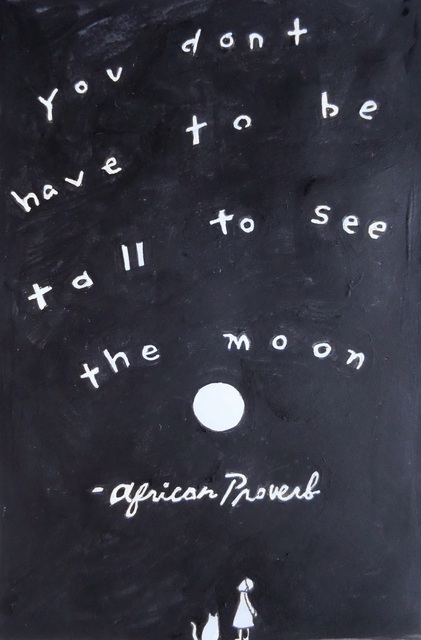 you dont
have to be
tall to see
the moon
-African Proverb